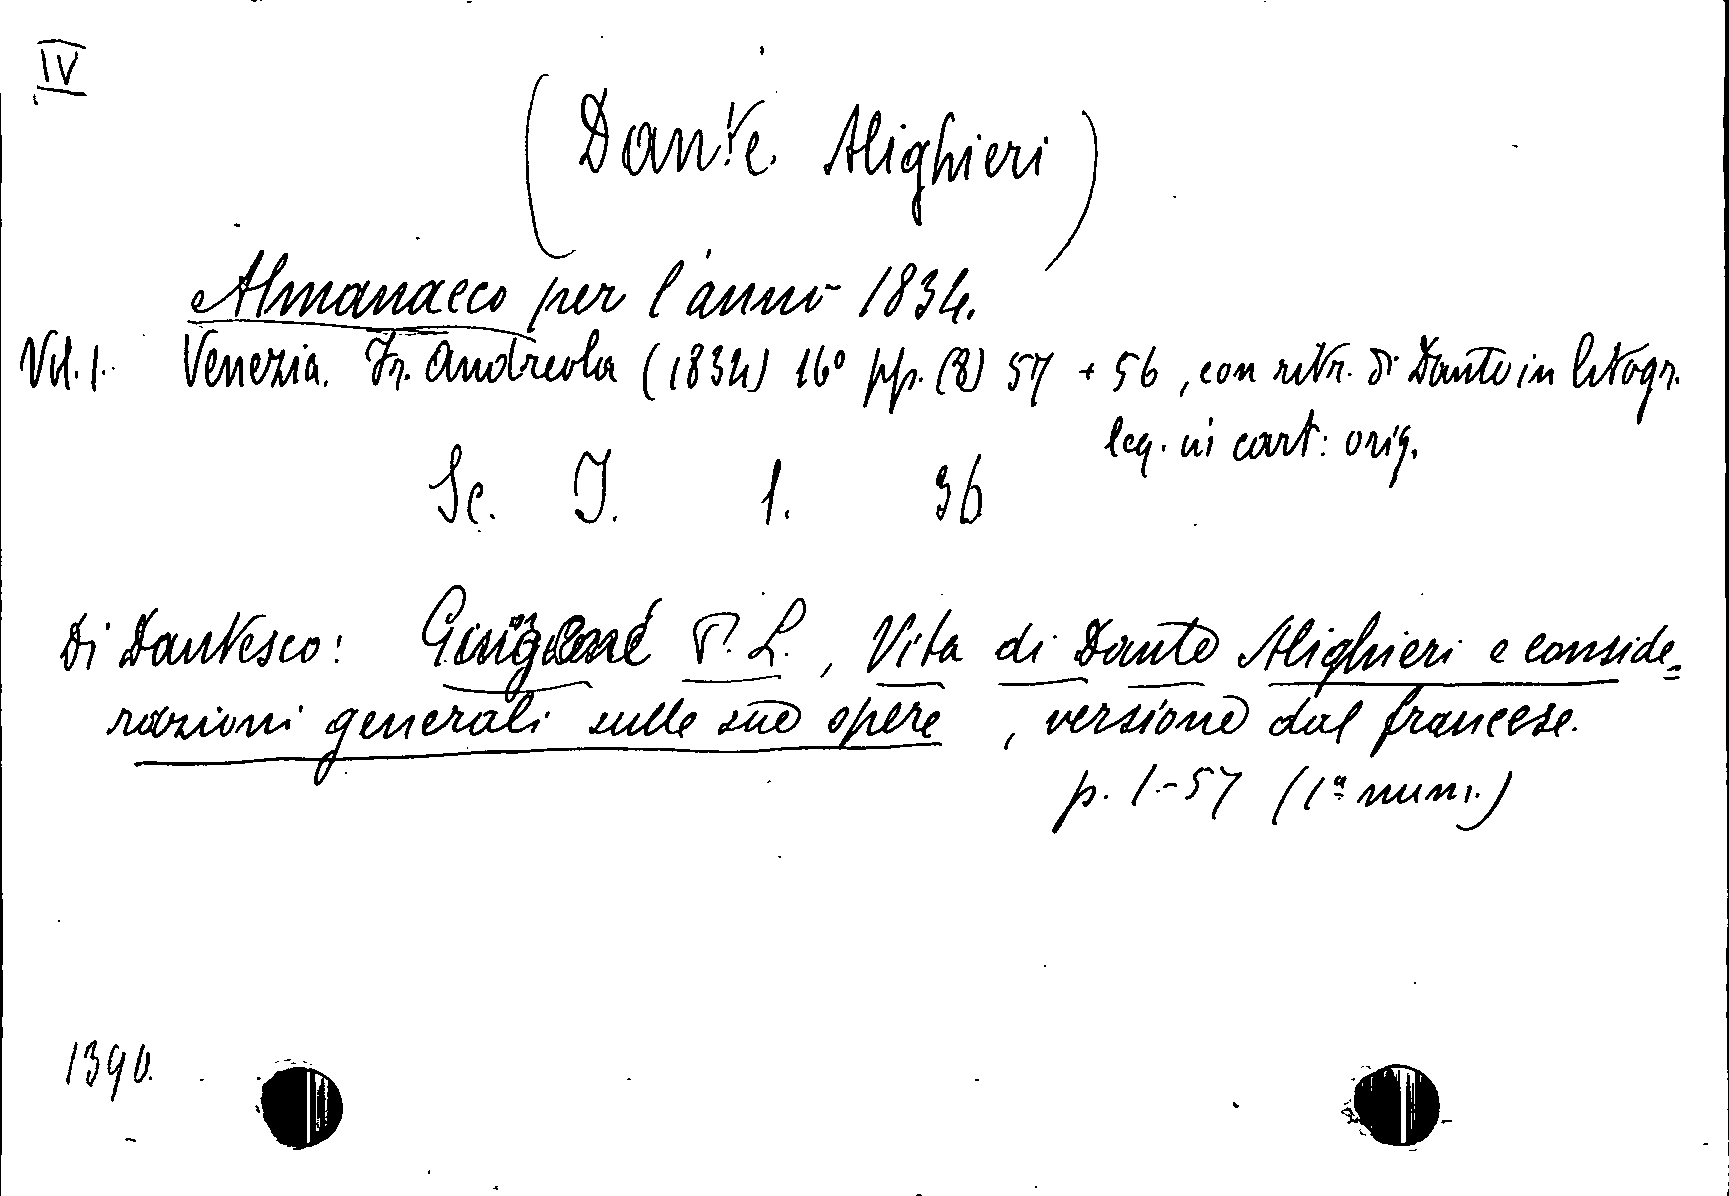 IV
(Dante Alighieri)
Almanacco per l'anno 1834.
Vol. 1. Venezia. Fr. Andreola (1834) 16° pp. (8) 57 + 56, con ritr. di Dante in litogr.
leg. in cart: orig.
Sc. I. 1. 36
Di Dantesco: Guinguené P. L., Vita di Dante Alighieri e conside=
razioni generali sulle sue opere, versione dal francese.
p. 1-57 (1ª num.)
1390.